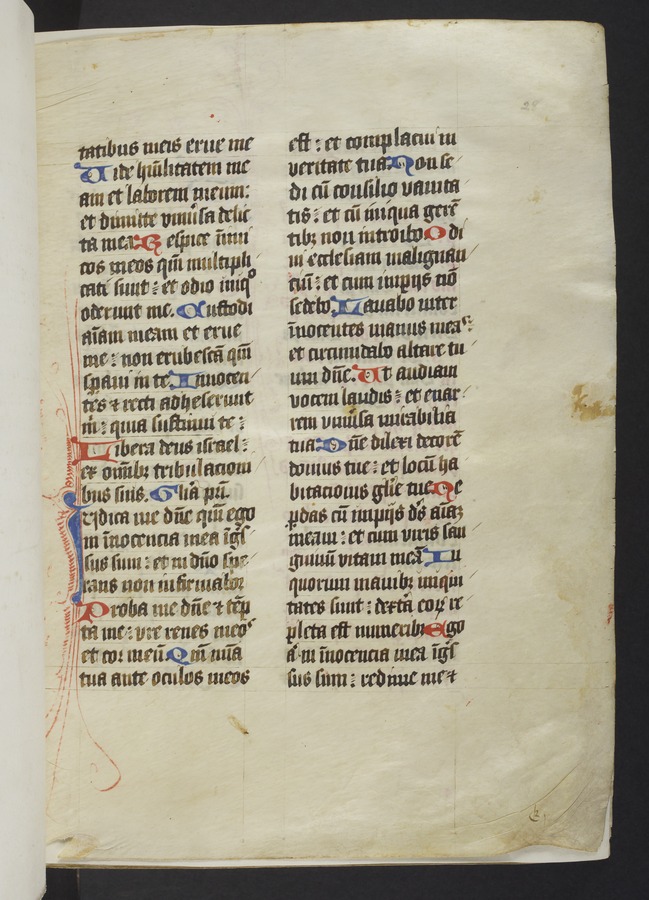 tatibus meis erue me
Uide hūilitatem me
am et laborem meum:
et dimitte vniūsa delic
ta mea. Respice inimi
cos meos qm̄ multipli
cati sunt: et odio iniqͦ
oderunt me. Custodi
aīam meam et erue
me: non erubescā qm̄
spaui in te. Innocen
tes ⁊ recti adheserunt
m̄: quia sustinui te:
Libera deus israel:
ex omībꝫ tribulacioni
bus suis. Gl̄ia pr̄i.
Iudica me dn̄e qm̄ ego
in īnocencia mea īgͥs
sus sum: et in dn̄o spe
rans non infirmaboꝛ
Proba me dn̄e ⁊ tēp
ta me: vre renes meoˢ
et cor meū. Qm̄ mīa
tua ante oculos meos
est: et complacui in
veritate tua. Non se
di cū consilio vanita
tis: et cū iniqua gerē
tibꝫ non introibo. Odi
in ecclesiam malignan
ciū: et cum impijs nō
sedebo. Lauabo inter
īnocentes manus meaˢ:
et circumdabo altare tu
um dn̄e. Ut audiam
vocem laudis: et enar
rem vniūsa mirabilia
tua. Dn̄e dilexi decorē
domus tue: et locū ha
bitacionis glīe tue. Ne
ꝑdas cū impijs ds̄ aīaꝫ
meam: et cum viris san
guinū vitam meā. In
quorum manibꝫ iniqui
tates sunt: dextā eoꝝ re
pleta est muneribꝫ. Ego
aͧ in īnocencia mea īgͥs
sus sum: redime me ⁊
28